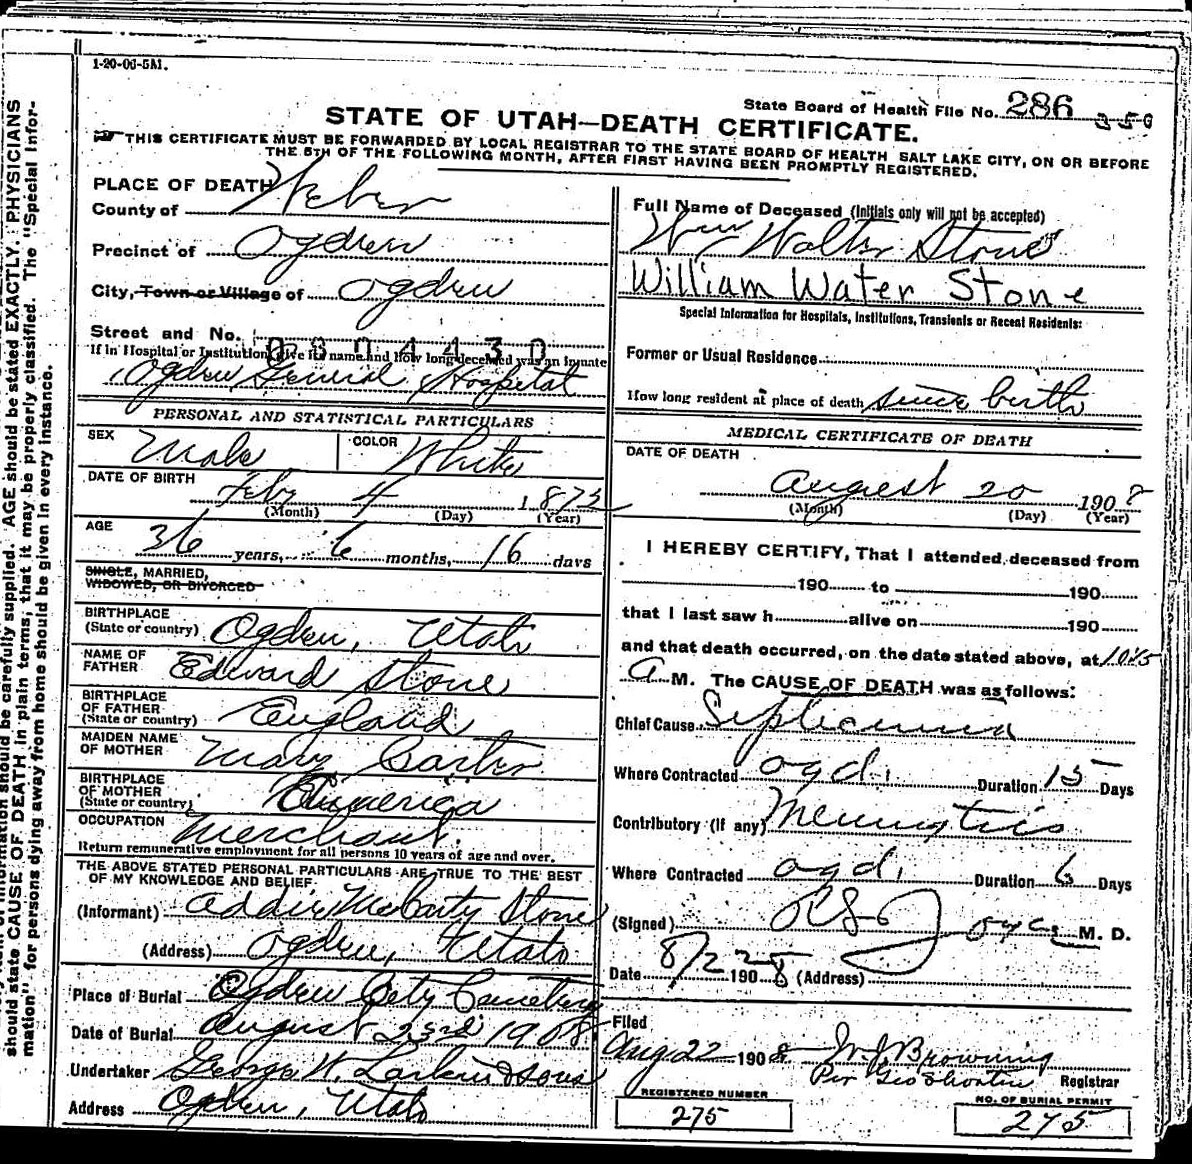 1-20-06-5M.
State Board of Health File No. 286 350
STATE OF UTAH—DEATH CERTIFICATE.
THIS CERTIFICATE MUST BE FORWARDED BY LOCAL REGISTRAR TO THE STATE BOARD OF HEALTH SALT LAKE CITY, ON OR BEFORE
THE 5TH OF THE FOLLOWING MONTH, AFTER FIRST HAVING BEEN PROMPTLY REGISTERED.
PLACE OF DEATH
County of Weber
Precinct of Ogden
City, Town or Village of Ogden
Street and No.
0804430
If in Hospital or Institution, give its name and how long deceased was an inmate
Ogden General Hospital
PERSONAL AND STATISTICAL PARTICULARS
SEX Male COLOR White
DATE OF BIRTH
Feby 4 187
(Month) (Day) (Year)
AGE
36 years, 6 months, 16 days
SINGLE, MARRIED,
WIDOWED, OR DIVORCED
BIRTHPLACE
(State or country) Ogden, Utah
NAME OF
FATHER Edward Stone
BIRTHPLACE
OF FATHER
(State or country) England
MAIDEN NAME
OF MOTHER Mary
BIRTHPLACE
OF MOTHER
(State or country) America
OCCUPATION Merchant
Return remunerative employment for all persons 10 years of age and over.
THE ABOVE STATED PERSONAL PARTICULARS ARE TRUE TO THE BEST
OF MY KNOWLEDGE AND BELIEF.
(Informant) Addie McCarty Stone
(Address) Ogden, Utah
Place of Burial Ogden City Cemetery
Date of Burial August 23rd 1908
Undertaker George W. Larkin & Sons
Address Ogden, Utah
Full Name of Deceased (Initials only will not be accepted)
Wm Walter Stone
William Water Stone
Special Information for Hospitals, Institutions, Transients or Recent Residents:
Former or Usual Residence
How long resident at place of death since birth
MEDICAL CERTIFICATE OF DEATH
DATE OF DEATH
August 20 1908
(Month) (Day) (Year)
I HEREBY CERTIFY, That I attended deceased from
190 to 190
that I last saw h alive on 190
and that death occurred, on the date stated above, at
A M. The CAUSE OF DEATH was as follows:
Chief Cause
Where Contracted Ogd. Duration 15 Days
Contributory (if any)
Where Contracted Ogd. Duration 6 Days
(Signed) M. D.
Date 8/22 1908 (Address)
Filed
Aug 22 1908 W.J. Browning
Per Geo Shorten Registrar
REGISTERED NUMBER
275
NO. OF BURIAL PERMIT
275
information should be carefully supplied. AGE should be stated EXACTLY. PHYSICIANS
should state CAUSE OF DEATH in plain terms, that it may be properly classified. The "Special Infor-
mation" for persons dying away from home should be given in every instance.